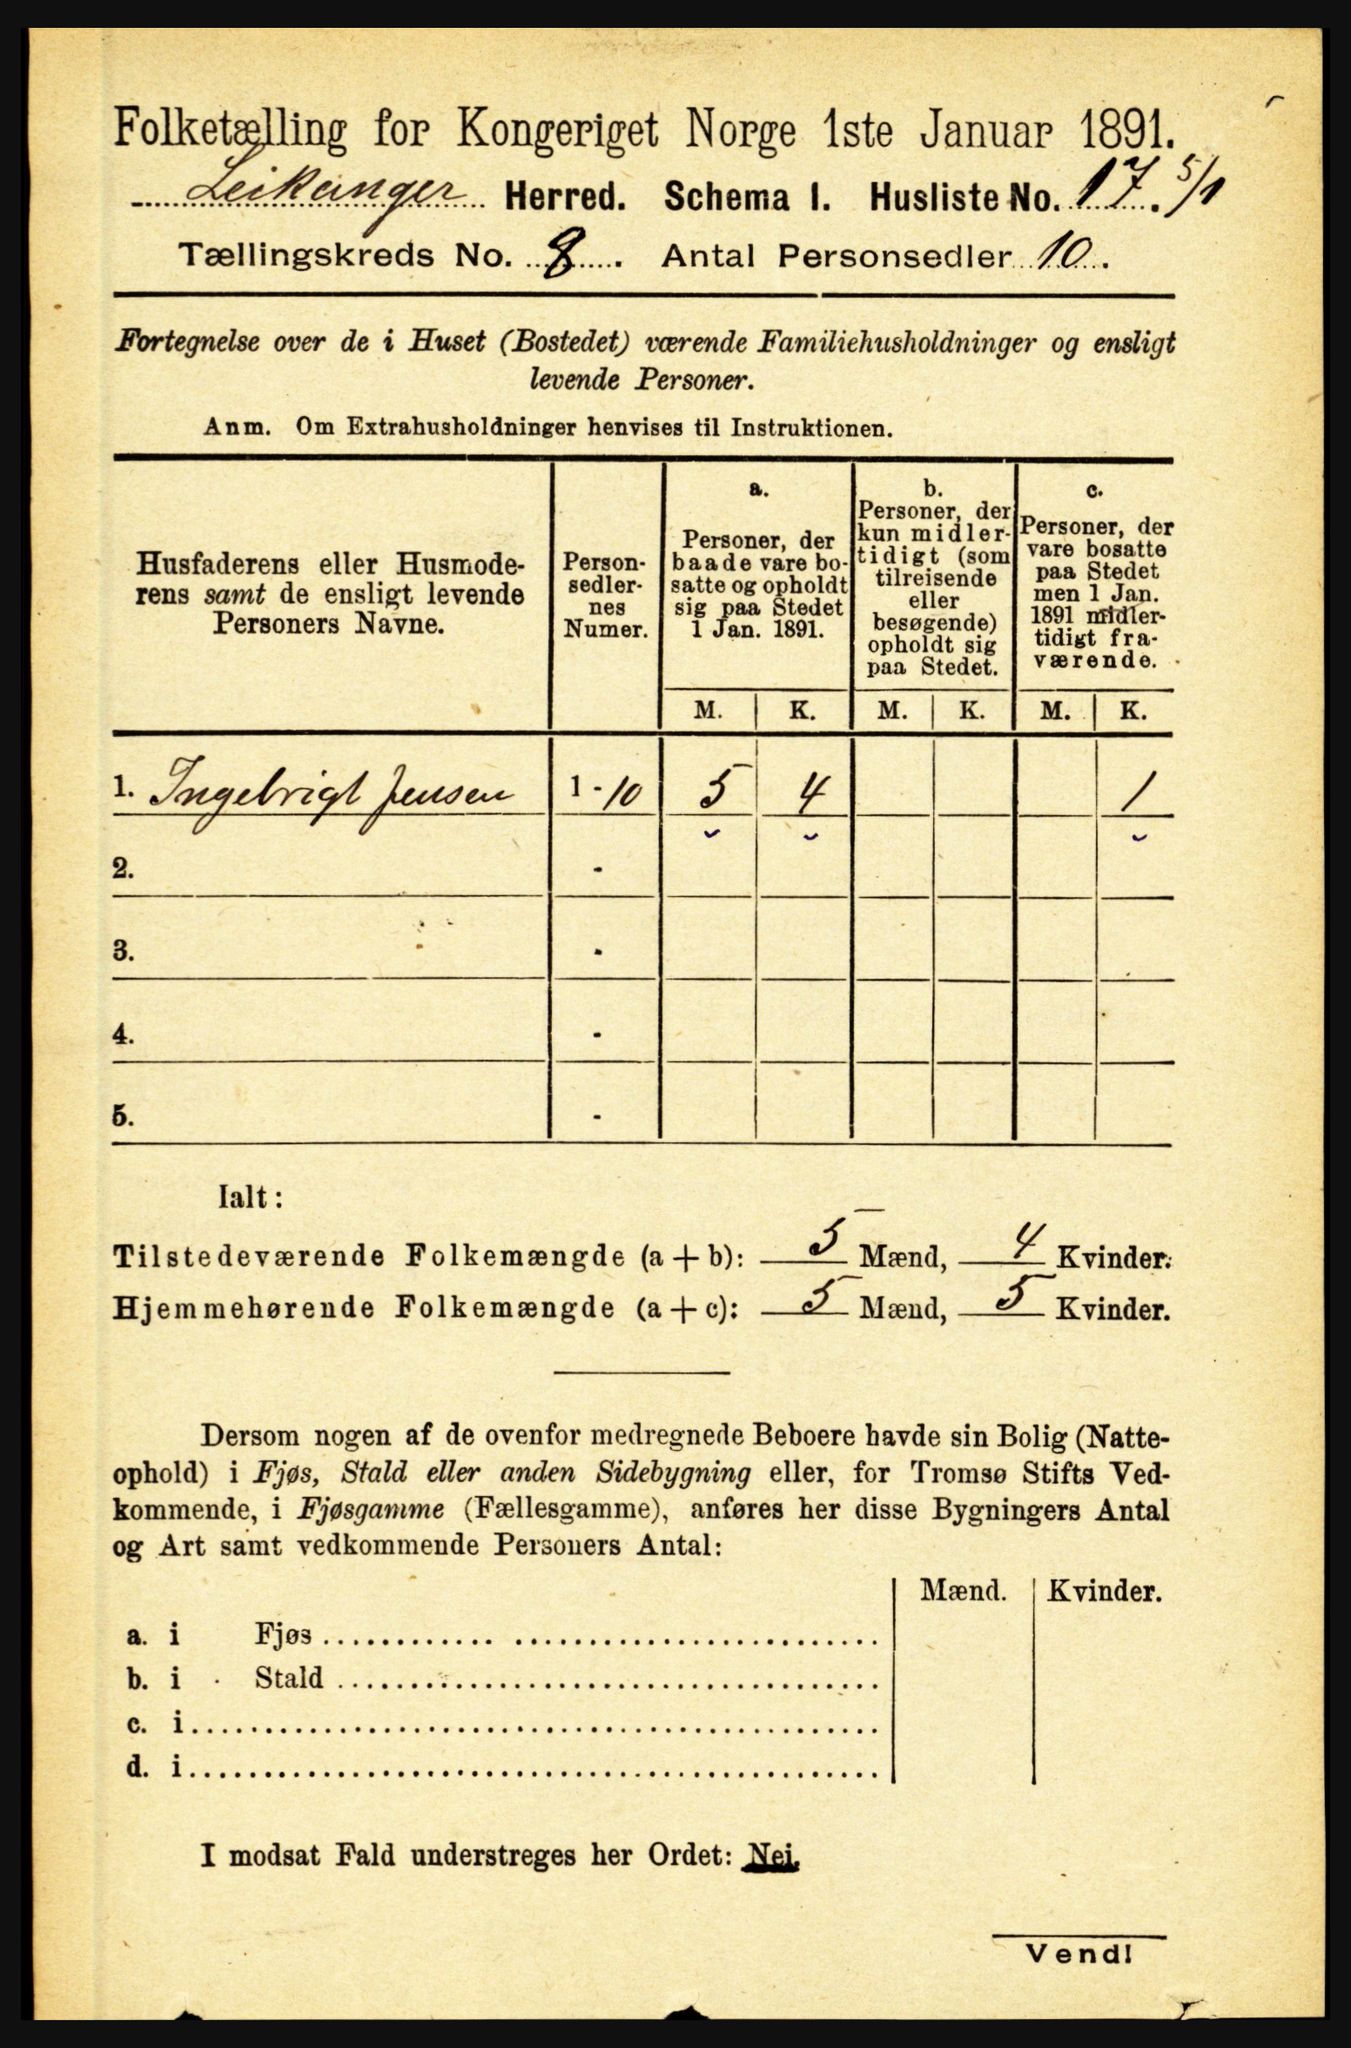 Folketælling for Kongeriget Norge 1ste Januar 1891.
Leikanger Herred. Schema I. Husliste No. 17. 5/1
Tællingskreds No. 8. Antal Personsedler 10.
Fortegnelse over de i Huset (Bostedet) værende Familiehusholdninger og ensligt
levende Personer.
Anm. Om Extrahusholdninger henvises til Instruktionen.
Husfaderens eller Husmode-
rens samt de ensligt levende
Personers Navne.
Person-
sedler-
nes
Numer.
a.
Personer, der
baade vare bo-
satte og opholdt
sig paa Stedet
1 Jan. 1891.
b.
Personer, der
kun midler-
tidigt (som
tilreisende
eller
besøgende)
opholdt sig
paa Stedet.
c.
Personer, der
vare bosatte
paa Stedet
men 1 Jan.
1891 midler-
tidigt fra-
værende.
M. K. M. K. M. K.
1. Ingebrigt Jensen 1 - 10 5 4 1
2. -
3. -
4. -
5. -
Ialt:
Tilstedeværende Folkemængde (a + b): 5 Mænd, 4 Kvinder.
Hjemmehørende Folkemængde (a + c): 5 Mænd, 5 Kvinder.
Dersom nogen af de ovenfor medregnede Beboere havde sin Bolig (Natte-
ophold) i Fjøs, Stald eller anden Sidebygning eller, for Tromsø Stifts Ved-
kommende, i Fjøsgamme (Fællesgamme), anføres her disse Bygningers Antal
og Art samt vedkommende Personers Antal:
Mænd. Kvinder.
a. i Fjøs
b. i Stald
c. i
d. i
I modsat Fald understreges her Ordet: Nei.
Vend!